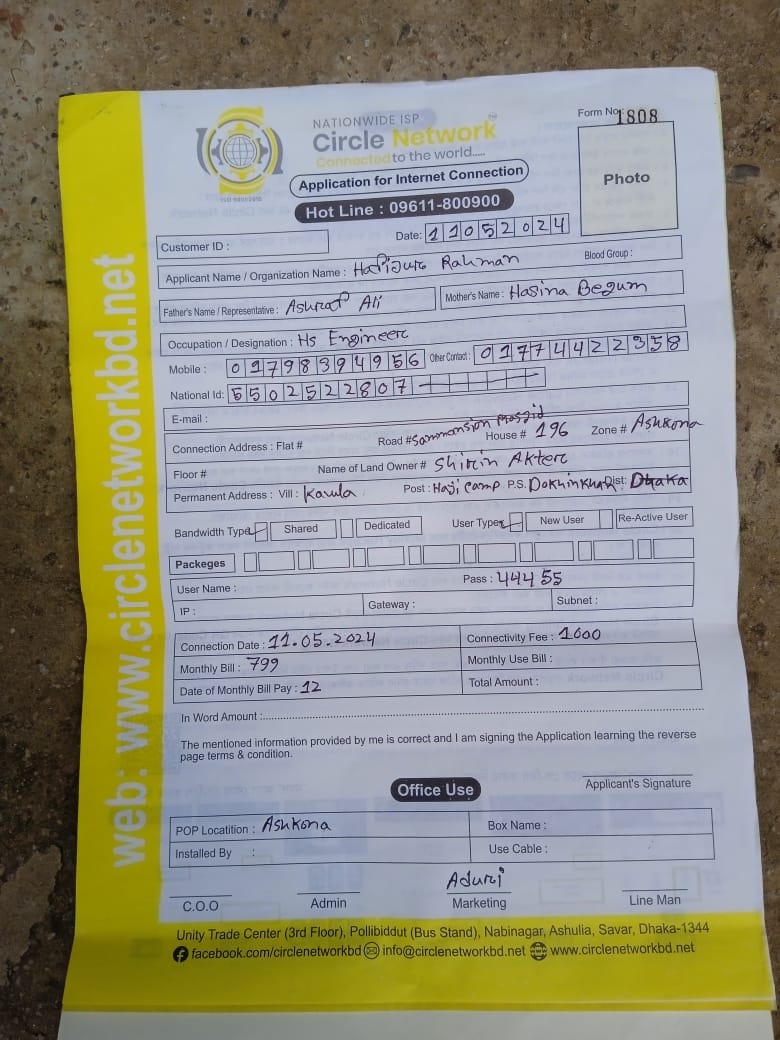 NATIONWIDE ISP
Circle Network
Connected to the world.....
Form No: 1808
Application for Internet Connection
Photo
Hot Line : 09611-800900
Customer ID :
Date: 11052024
Applicant Name / Organization Name : Hafizure Rahman Blood Group :
Father's Name / Representative : Ashraf Ali Mother's Name : Hasina Begum
Occupation / Designation : Hs Engineer
Mobile : 01798394956 Other Contact : 01774422358
National Id: 5502522807
E-mail :
Connection Address : Flat # Road # House # 196 Zone # Ashkona
Floor # Name of Land Owner # Shirin Akter
Permanent Address : Vill : Kawla Post : Haji Camp P.S. Dokhinkhan Dist: Dhaka
Bandwidth Type Shared Dedicated User Type New User Re-Active User
Packeges
User Name : Pass : 44455
IP : Gateway : Subnet :
Connection Date : 11.05.2024 Connectivity Fee : 1000
Monthly Bill : 799 Monthly Use Bill :
Date of Monthly Bill Pay : 12 Total Amount :
In Word Amount :
The mentioned information provided by me is correct and I am signing the Application learning the reverse
page terms & condition.
Office Use
Applicant's Signature
POP Locatition : Ashkona Box Name :
Installed By : Use Cable :
Aduri
C.O.O Admin Marketing Line Man
Unity Trade Center (3rd Floor), Pollibiddut (Bus Stand), Nabinagar, Ashulia, Savar, Dhaka-1344
facebook.com/circlenetworkbd info@circlenetworkbd.net www.circlenetworkbd.net
web: www.circlenetworkbd.net